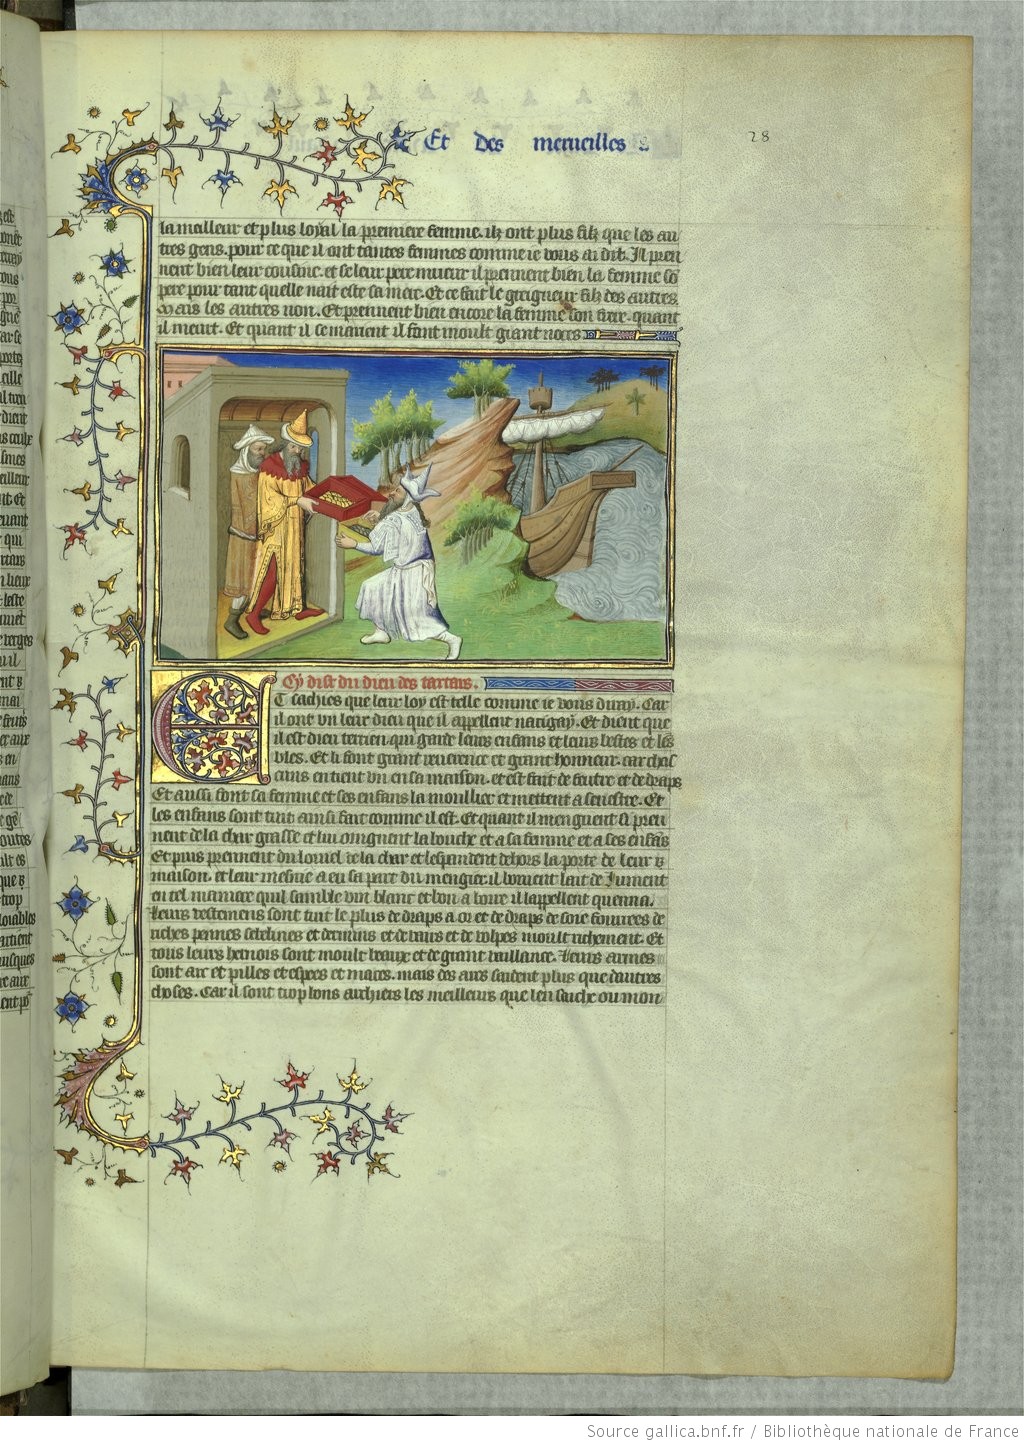 Et des merueilles
28
la meilleur et plus loyal la premiere femme. ilz ont plus filz que les au
tres gens. pour ce que il ont tantes femmes comme ie vous ai dit. Il pren
nent bien leur cousine. et se leur pere muert il prennent bien la femme so
pere pour tant quelle nait este sa mere. Et ce fait le greigneur filz des autres.
Mais les autres non. Et prennent bien encore la femme son frere. quant
il meurt. Et quant il se marient il font moult grant noces
Cy dist du dieu des tartars.
Et sachies que leur loy est telle comme ie vous diray. Car
il ont vn leur dieu que il appellent natigay. Et dient que
il est dieu terrien qui garde leurs enfans et leurs bestes et les
bles. Et li font grant reuerence et grant honneur. car chas
cuns en tient vn en sa maison. et est fait de feutre et de draps
Et aussi font sa femme et ses enfans la moullier et mettent a senestre. Et
les enfans sont tuit ainsi fait comme il est. Et quant il menguent si preu
nent de la char grasse et lui oingnent la bouche et a sa femme et a ses enfans
Et puis prennent du de la char et lespandent dehors la porte de leur
maison. et leur mesnie a eu sa part du mengier. il boiuent lait de Jument
en tel maniere quil samble vin blanc et bon a boire il lappellent quenna.
Leurs vestemens sont tuit le plus de draps a or et de draps de soie fourrees de
riches pennes sebelines et dermins et de vairs et de volpes moult richement. Et
tous leurs hernois sont moult beaux et de grant vaillance. Leurs armes
sont arc et pilles et espees et maces. mais des ars saident plus que dautres
choses. Car il sont trop bons archiers les meilleurs que len sache ou mon
Source gallica.bnf.fr / Bibliothèque nationale de France